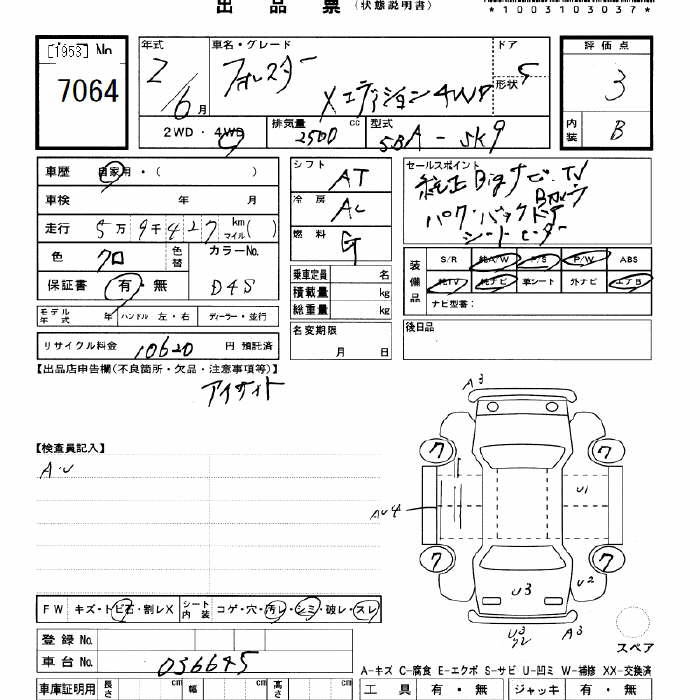 出品票 (状態説明書)
*1003103037*
[1953] No 7064
年式 2/6月
車名・グレード フォレスター Xエディション4WD
ドア形状 5
評価点 3
内装 B
2WD・4WD
排気量 2500 cc
型式 5BA-SK9
車歴 自家用・( )
車検 年 月
走行 5万9千427 km マイル( )
色 クロ 色替
カラーNo. D4S
保証書 有・無
モデル年式 年 ハンドル 左・右 ディーラー・並行
リサイクル料金 10620 円 預託済
シフト AT
冷房 AC
燃料 G
乗車定員 名
積載量 kg
総重量 kg
名変期限 月 日
セールスポイント
純正Bigナビ・TV
Bカメラ
パワーバックドア
シートヒーター
装備品 S/R 純A/W P/S P/W ABS
純TV 純ナビ 革シート 外ナビ エアB
ナビ型番:
後日品
【出品店申告欄(不良箇所・欠品・注意事項等)】
アイサイト
【検査員記入】
A・U
A3
7
7
U1
AU4
7
7
U3
U2
U3
A3
スペア
FW キズ・トビ石・割レX シート内装 コゲ・穴・汚レ・シミ・破レ・スレ
登録No.
車台No. 036645
A-キズ C-腐食 E-エクボ S-サビ U-凹ミ W-補修 XX-交換済
車庫証明用 長さ cm 幅 cm 高さ cm
工具 有・無 ジャッキ 有・無